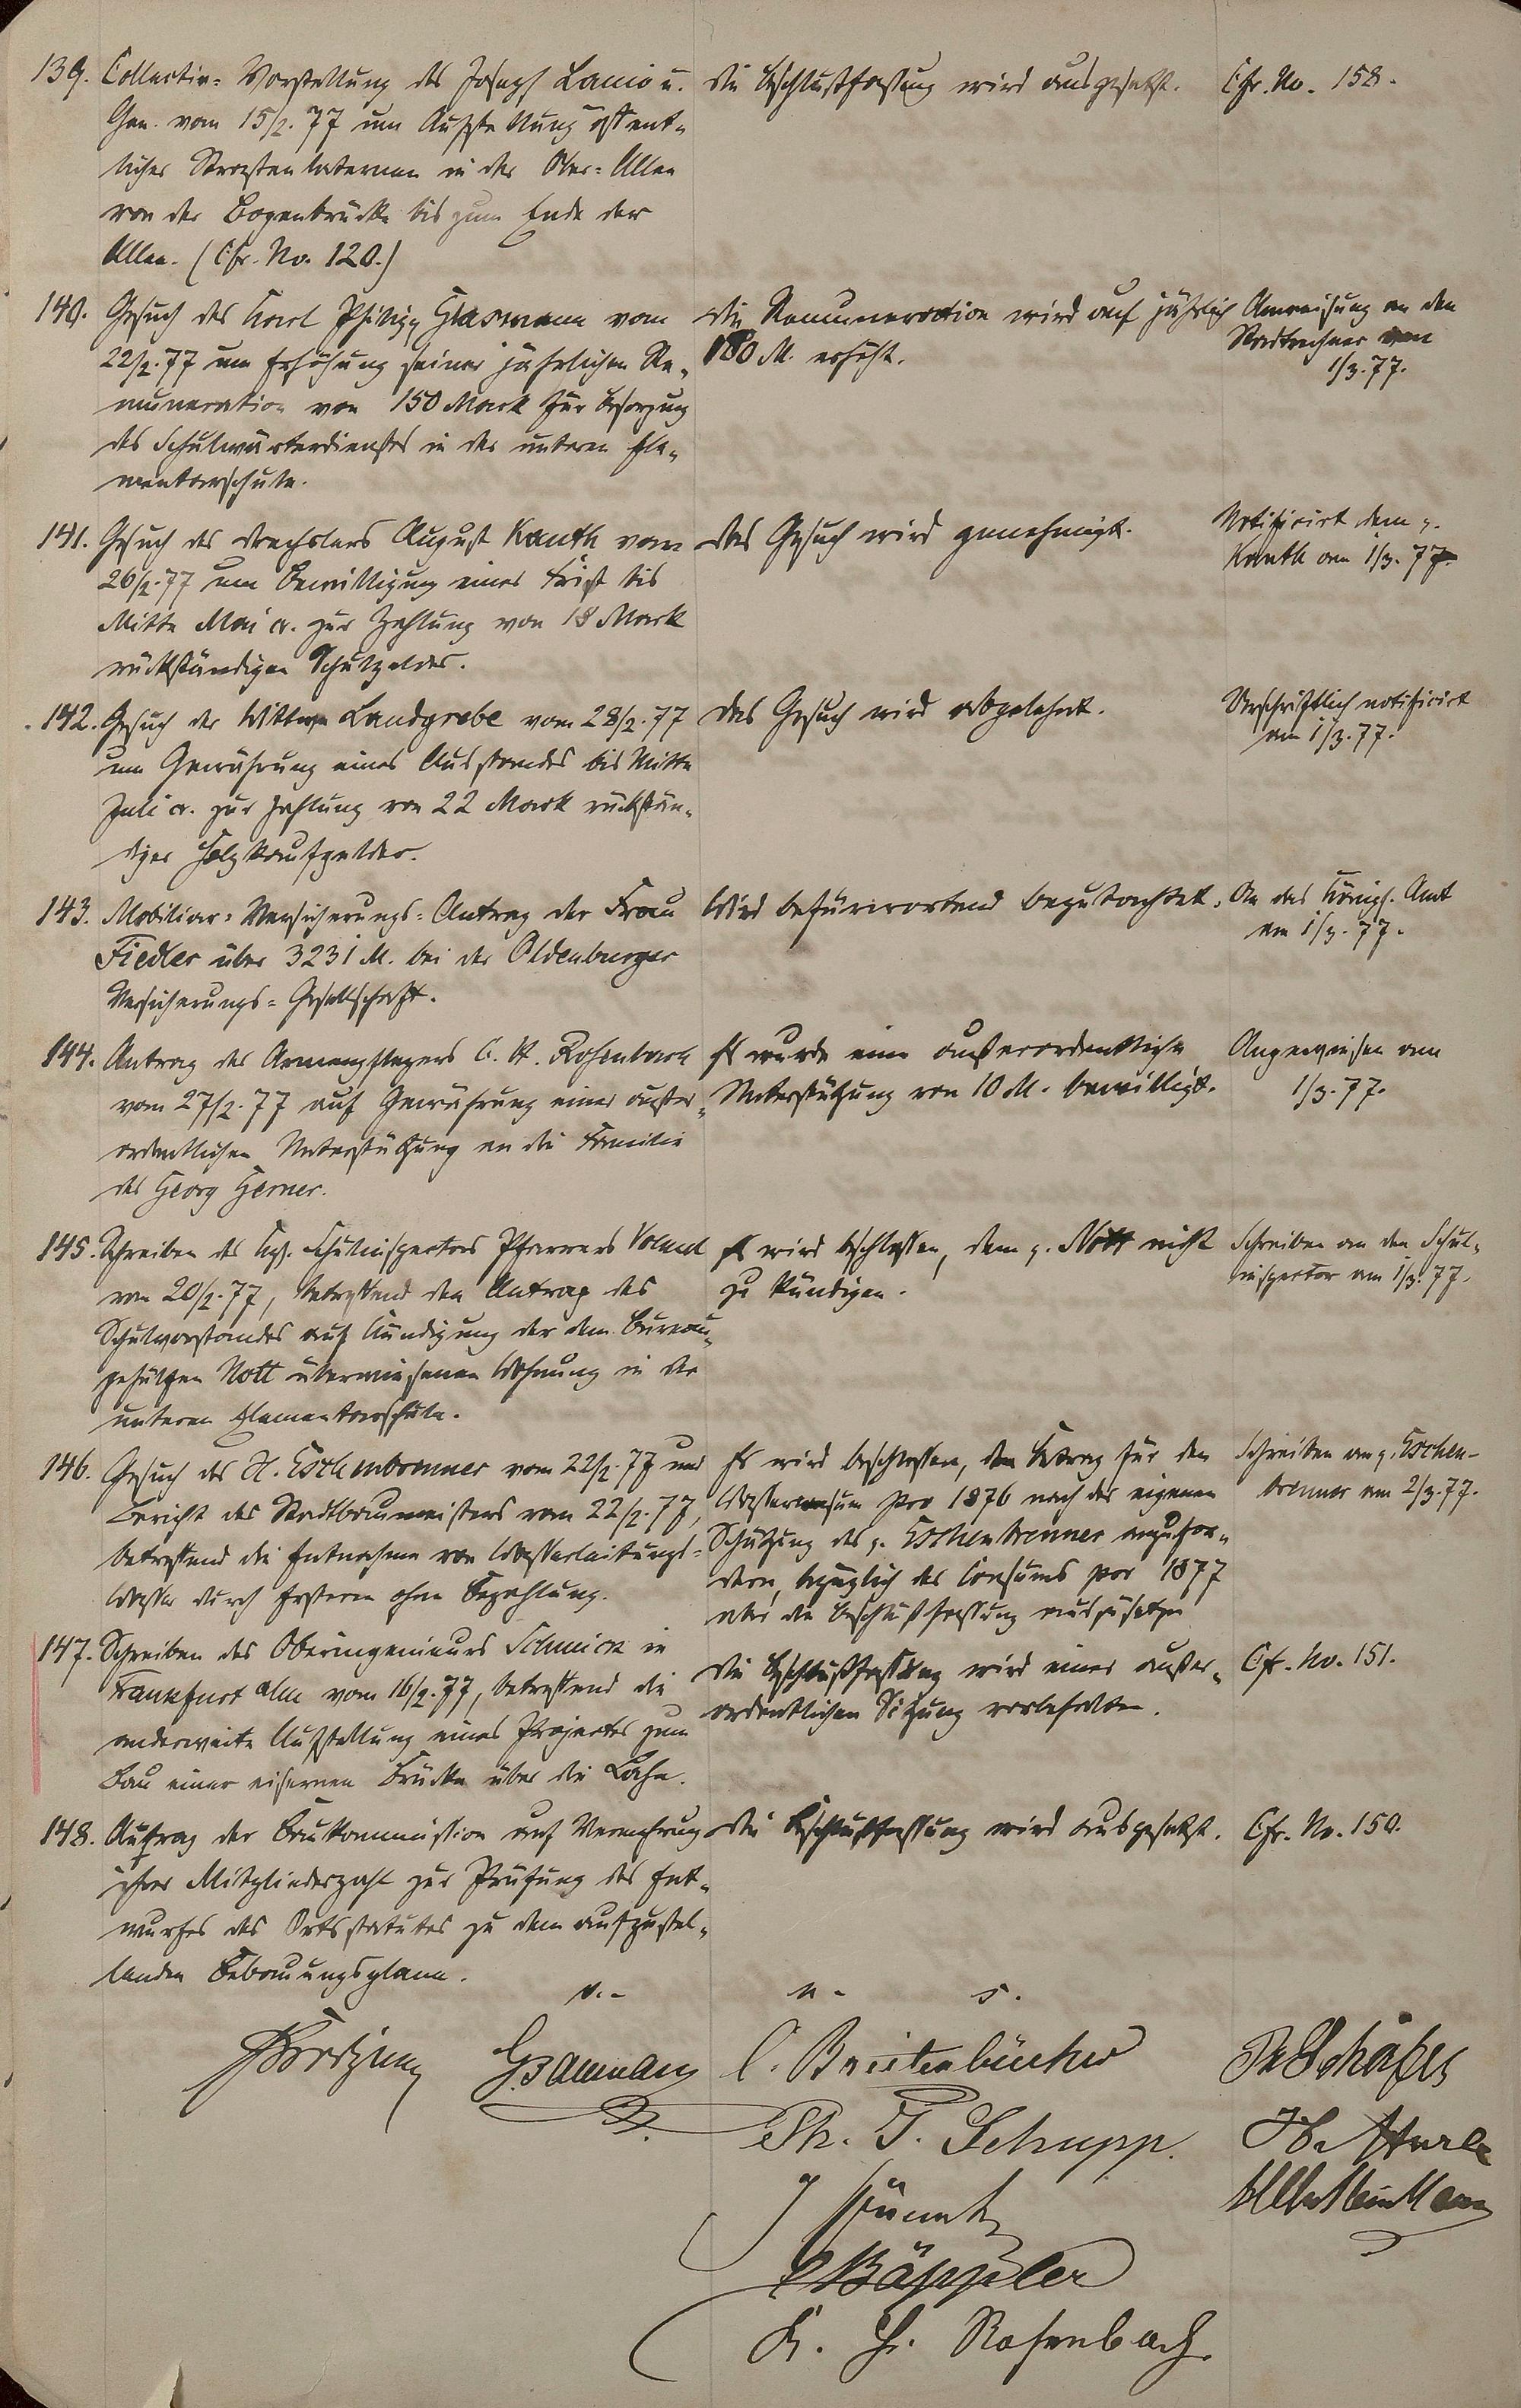 139. Collectiv-Vorstellung des Joseph Lanio u.
Gen. vom 15/2. 77 um Aufstellung öffent-
licher Straßenlaternen in der Ober-Allee
von der Bogenbrücke bis zum Ende der
Allee. (Cfr. No. 120.)
Die Beschlußfassung wird ausgesetzt.
Cfr. No. 158.
140. Gesuch des Karl Philipp Glasmann vom
22/2. 77 um Erhöhung seiner jährlichen Re-
muneration von 150 Mark für Besorgung
des Schulwärterdienstes in der unteren Ele-
mentarschule.
Die Remuneration wird auf jährlich
180 M. erhöht.
Anweisung an den
Stadtrechner am
1/3. 77.
141. Gesuch des Drechslers August Kanth vom
26/2. 77 um Bewilligung einer Frist bis
Mitte Mai cr. zur Zahlung von 18 Mark
rückständigen Schulgeldes.
Das Gesuch wird genehmigt.
Notificirt dem p.
Kanth am 1/3. 77.
142. Gesuch der Wittwe Landgrebe vom 28/2. 77
um Gewährung eines Ausstandes bis Mitte
Juli cr. zur Zahlung von 22 Mark rückstän-
diger Holzkaufgelder.
Das Gesuch wird abgelehnt.
Urschriftlich notificirt
am 1/3. 77.
143. Mobiliar-Versicherungs-Antrag der Frau
Fiedler über 3231 M. bei der Oldenburger
Versicherungs-Gesellschaft.
Wird befürwortend begutachtet.
An das Königl. Amt
am 1/3. 77.
144. Antrag des Armenpflegers C. H. Rosenbach
vom 27/2. 77 auf Gewährung einer außer-
ordentlichen Unterstützung an die Familie
des Georg Gerner.
Es wurde eine außerordentliche
Unterstützung von 10 M. bewilligt.
Angewiesen am
1/3. 77.
145. Schreiben des Kgl. Schulinspectors Pfarrers
vom 20/2. 77, betreffend den Antrag des
Schulvorstandes auf Kündigung der dem Bureau-
gehülfen Nott überwiesenen Wohnung in der
unteren Elementarschule.
Es wird beschlossen, dem p. Nott nicht
zu kündigen.
Schreiben an den Schul-
inspector am 1/3. 77.
146. Gesuch des H. Eschenbrenner vom 22/2. 77 und
Bericht des Stadtbaumeisters vom 22/2. 77,
betreffend die Entnahme von Wasserleitungs-
wasser durch Ersteren ohne Bezahlung.
Es wird beschlossen, den Betrag für den
Wasserconsum pro 1876 nach der eigenen
Schätzung des p. Eschenbrenner anzufor-
dern, bezüglich des Consums pro 1877
aber die Beschlußfassung auszusetzen
Schreiben an p. Eschen-
brenner am 2/3. 77.
147. Schreiben des Oberingenieurs Schmick in
Frankfurt a/m vom 16/2. 77, betreffend die
anderweite Aufstellung eines Projectes zum
Bau einer eisernen Brücke über die Lahn.
Die Beschlußfassung wird einer außer-
ordentlichen Sitzung vorbehalten.
Cfr. No. 151.
148. Antrag der Baukommission auf Vermehrung
ihrer Mitgliederzahl zur Prüfung des Ent-
wurfes des Ortsstatutes zu dem aufzustel-
lenden Bebauungsplane.
Die Beschlußfassung wird ausgesetzt.
Cfr. No. 150.
v. n. s.
G. Baumann
C. Breitenbücher
Schäfer
Ph. J. Schupp.
J Künath
Käppler
K. H. Rosenbach.